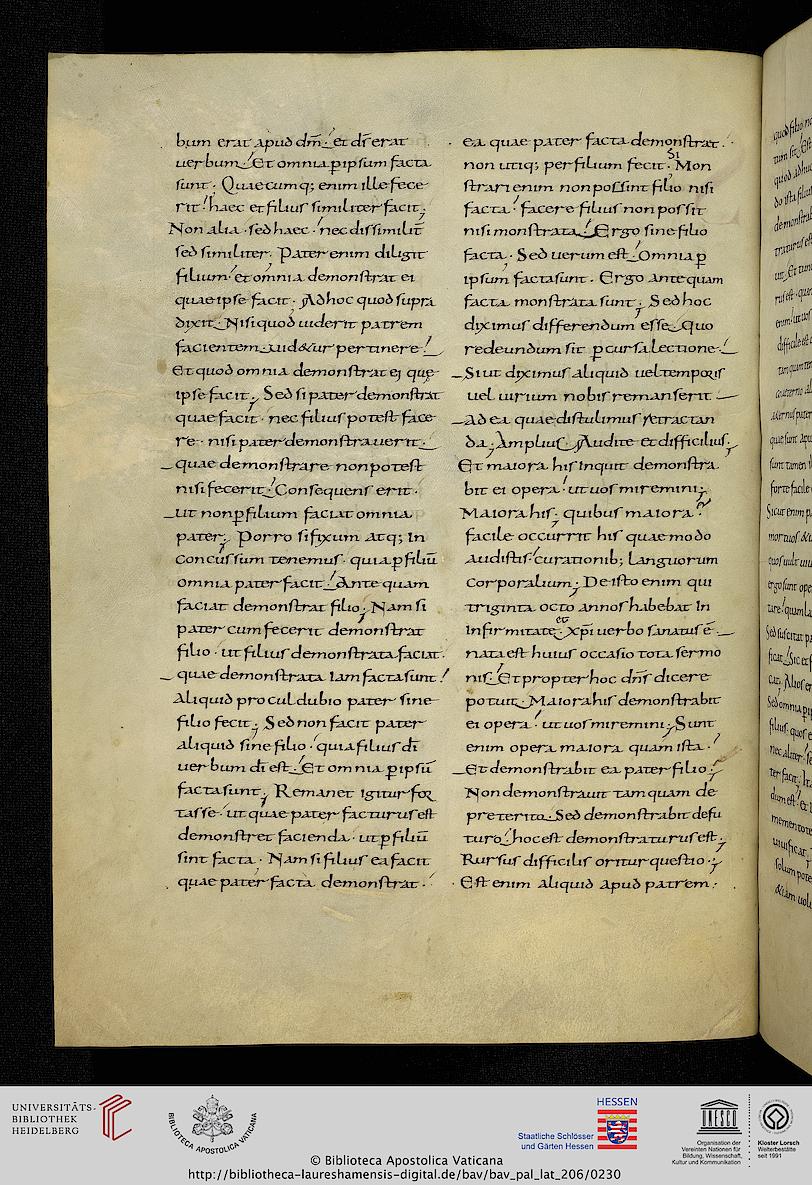 bum erat apud dm̄. et ds̄ erat
uerbum. Et omnia ꝑ ipsum facta
sunt. Quaecumq; enim ille fece
rit. haec et filius similiter facit;
Non alia. sed haec. nec dissimilit̄
sed similiter. Pater enim diligit
filium. et omnia demonstrat ei
quae ipse facit. Ad hoc quod supra
dixit. Nisi quod uiderit patrem
facientem. uid&ur pertinere.
Et quod omnia demonstrat ei quę
ipse facit; Sed si pater demonstrat
quae facit. nec filius potest face
re. nisi pater demonstrauerit.
quae demonstrare non potest
nisi fecerit. Consequens erit.
ut non ꝑ filium faciat omnia
pater; Porro si fixum atq; in
concussum tenemus. quia ꝑ filiū
omnia pater facit. Ante quam
faciat demonstrat filio; Nam si
pater cum fecerit demonstrat
filio. ut filius demonstrata faciat.
quae demonstrata iam facta sunt.
Aliquid procul dubio pater sine
filio fecit; Sed non facit pater
aliquid sine filio. quia filius dī
uerbum dī est. Et omnia ꝑ ipsū
facta sunt; Remanet igitur for
tasse. ut quae pater facturus est
demonstret facienda. ut ꝑ filiū
sint facta. Nam si filius ea facit
quae pater facta demonstrat.
ea quae pater facta demonstrat.
non utiq; per filium fecit. Si Mon
strari enim non possint filio nisi
facta. facere filius non possit
nisi monstrata. Ergo sine filio
facta. Sed uerum est. Omnia ꝑ
ipsum facta sunt. Ergo ante quam
facta monstrata sunt; Sed hoc
diximus differendum esse. quo
redeundum sit ꝑcursa lectione.
Si ut diximus aliquid uel temporis
uel uirium nobis remanserit
Ad ea quae distulimus retractan
da; Amplius. Audite et difficilius;
Et maiora his inquit demonstra
bit ei opera. ut uos miremini;
Maiora his. quibus maiora?
facile occurrit his quae modo
audistis. curationib; languorum
corporalium; De isto enim qui
triginta octo annos habebat in
infirmitate. et xp̄i uerbo sanatus ē.
nata est huius occasio tota sermo
nis. Et propter hoc dn̄s dicere
potuit. Maiora his demonstrabit
ei opera. ut uos miremini; Sunt
enim opera maiora quam ista.
Et demonstrabit ea pater filio;
Non demonstrauit tamquam de
preterito. Sed demonstrabit de fu
turo. hoc est demonstraturus est;
Rursus difficilis oritur questio;
Est enim aliquid apud patrem.
UNIVERSITÄTS-
BIBLIOTHEK
HEIDELBERG
BIBLIOTECA APOSTOLICA VATICANA
HESSEN
Staatliche Schlösser
und Gärten Hessen
UNESCO
Organisation der
Vereinten Nationen für
Bildung, Wissenschaft,
Kultur und Kommunikation
Kloster Lorsch
Welterbestätte
seit 1991
© Biblioteca Apostolica Vaticana
http://bibliotheca-laureshamensis-digital.de/bav/bav_pal_lat_206/0230